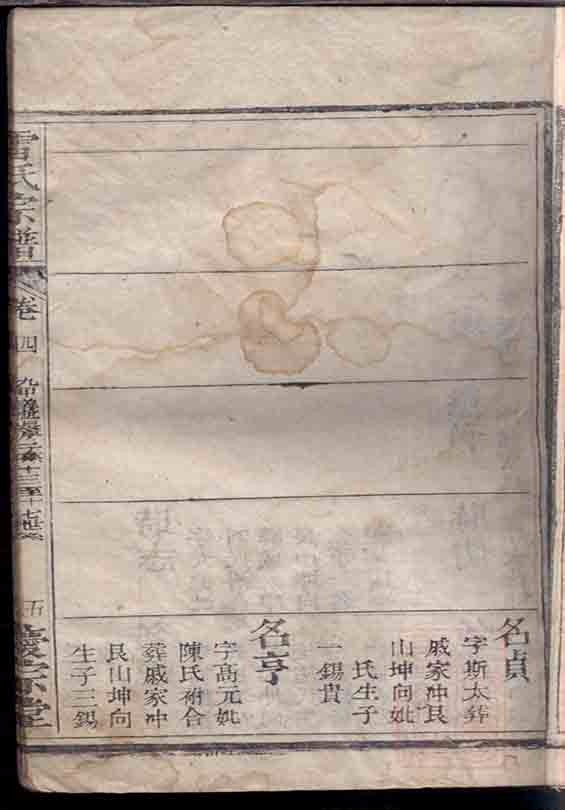 名貞
字斯太葬
戚家冲艮
山坤向妣
氏生子
一錫貴
名亨
字高元妣
陳氏祔合
葬戚家冲
艮山坤向
生子三錫
雷氏宗譜
卷四
五
慶宗堂